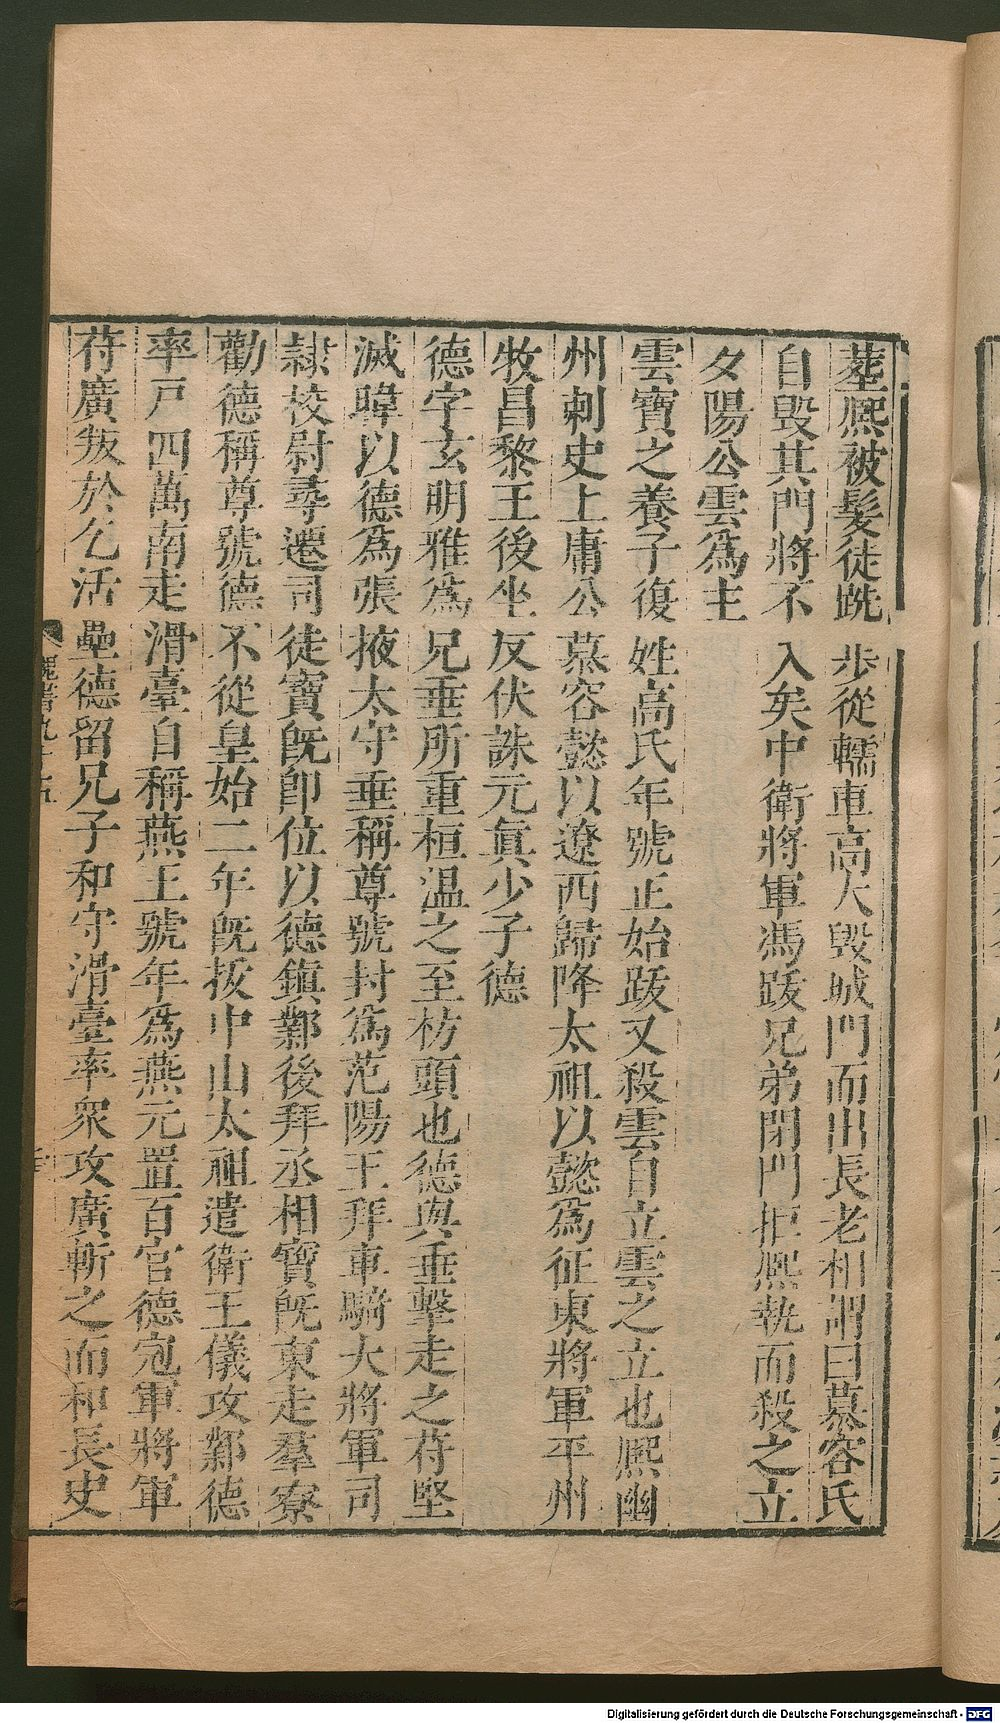 葬熙被髮徒跣步從轜車高大毀城門而出長老相謂曰慕容氏
自毀其門將不入矣中衛將軍馮跋兄弟閉門拒熙執而殺之立
夕陽公雲為主
雲寶之養子復姓高氏年號正始跋又殺雲自立雲之立也熙幽
州刺史上庸公慕容懿以遼西歸降太祖以懿為征東將軍平州
牧昌黎王後坐反伏誅元真少子德
德字玄明雅為兄垂所重桓溫之至枋頭也德與垂擊走之苻堅
滅暐以德為張掖太守垂稱尊號封為范陽王拜車騎大將軍司
隸校尉尋遷司徒寶既即位以德鎮鄴後拜丞相寶既東走羣寮
勸德稱尊號德不從皇始二年既拔中山太祖遣衛王儀攻鄴德
率戶四萬南走滑臺自稱燕王號年為燕元置百官德冠軍將軍
苻廣叛於乞活壘德留兄子和守滑臺率眾攻廣斬之而和長史
魏書九十五
Digitalisierung gefördert durch die Deutsche Forschungsgemeinschaft - DFG